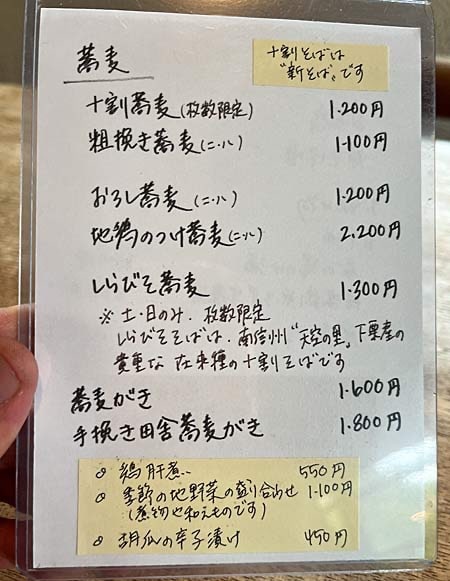 蕎麦
十割そばは
〝新そば〟です
十割蕎麦(枚数限定) 1.200円
粗挽き蕎麦(二・八) 1.100円
おろし蕎麦(二・八) 1.200円
地鶏のつけ蕎麦(二・八) 2.200円
しらびそ蕎麦 1.300円
※土・日のみ.枚数限定
しらびそそばは.南信州〝天空の里〟下栗産の
貴重な在来種の十割そばです
蕎麦がき 1.600円
手挽き田舎蕎麦がき 1.800円
○ 鶏肝煮 550円
○ 季節の地野菜の盛り合わせ 1.100円
(煮物や和えものです)
○ 胡瓜の辛子漬け 450円